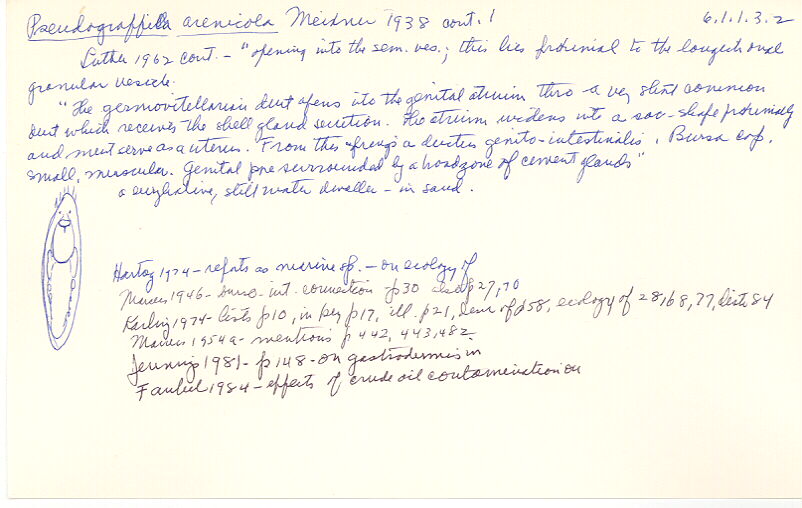 Pseudograffilla arenicola Meixner 1938 cont. 1 6.1.1.3.2
Luther 1962 cont. - "opening into the sem. ves.; this lies proximal to the
granular vesicle.
"The germovitellarian duct opens into the genital atrium thro a very short common
duct which receives the shell gland secretion. The atrium widens into a sac-shape proximally
and must serve as a uterus. From this springs a ductus genito-intestinalis. Bursa cop.
small, muscular. Genital pore surrounded by a broad zone of cement glands"
a euryhaline, still water dweller - in sand.
Hartog 1974 - reports as marine sp. - on ecology of
Marcus 1946 - burso-int. connection p30 also p27, 70
Karling 1974 - lists p10, in key p17, ill. p21, p58, ecology of 28, 68, 77, lists 84
Marcus 1954a - mentions p 442, 443, 482
Jennings 1981 - p 148 - on gastrodermis in
Faubel 1984 - effects of crude oil contamination on